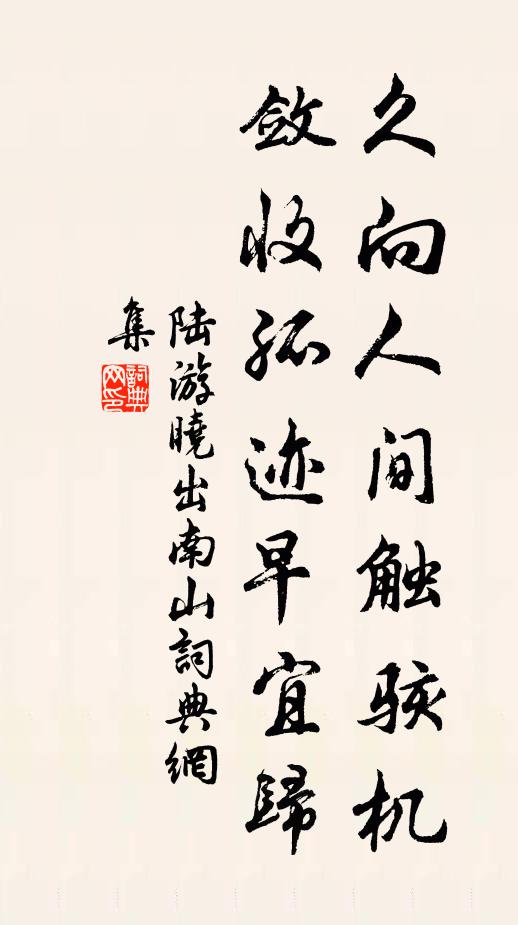 久向人间触骇机
敛收孤迹早宜歸
陆游曉出南山詞典網
集
詞典
网印